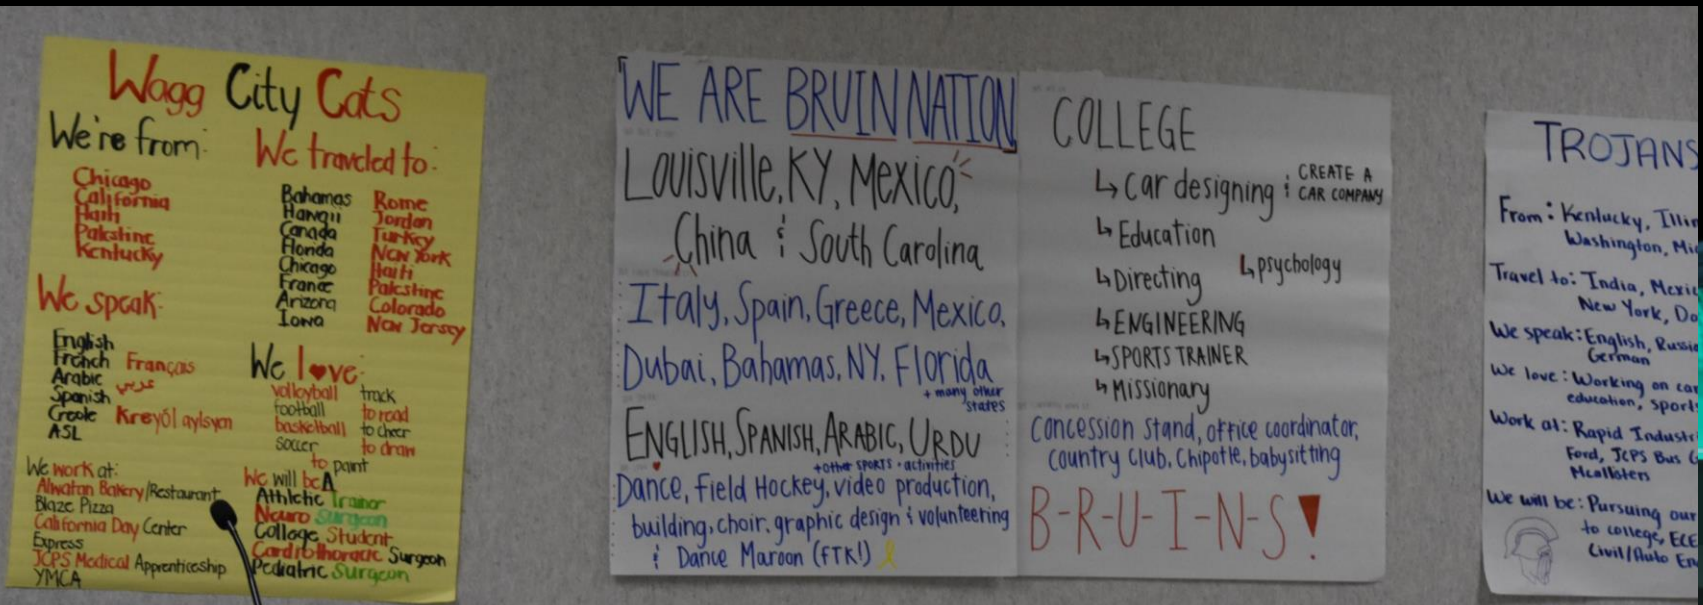 Wagg City Cats
We're from:
Chicago
California
Haiti
Palestine
Kentucky
We speak:
English
French Français
Arabic عربي
Spanish
Creole Kreyól aylsyen
ASL
We work at:
Alwatan Bakery/Restaurant
Blaze Pizza
California Day Center
Express
JCPS Medical Apprenticeship
YMCA
We traveled to:
Bahamas Rome
Hawaii Jordan
Canada Turkey
Florida New York
Chicago Haiti
France Palestine
Arizona Colorado
Iowa New Jersey
We l♥ve:
volleyball track
football to read
basketball to cheer
soccer to draw
to paint
We will be A
Athletic Trainer
Neuro Surgeon
College Student
Cardiothoracic Surgeon
Pediatric Surgeon
WE ARE BRUIN NATION
LOUISVILLE, KY, MEXICO,
China & South Carolina
Italy, Spain, Greece, Mexico,
Dubai, Bahamas, NY, Florida
+ many other
states
ENGLISH, SPANISH, ARABIC, URDU
+other SPORTS + activities
Dance, Field Hockey, video production,
building, choir, graphic design & volunteering
& Dance Maroon (FTK!)
COLLEGE
↳ car designing & CREATE A
CAR COMPANY
↳ Education
↳ psychology
↳ Directing
↳ ENGINEERING
↳ SPORTS TRAINER
↳ Missionary
Concession Stand, office coordinator,
country club, Chipotle, babysitting
B-R-U-I-N-S!
TROJANS
From: Kentucky, Illin
Washington, Mi
Travel to: India, Mexic
New York, Do
We speak: English, Russia
German
We love: Working on car
education, sport
Work at: Rapid Industr
Ford, JCPS Bus
Mcallisters
We will be: Pursuing our
to college, ECE
Civil/Auto En